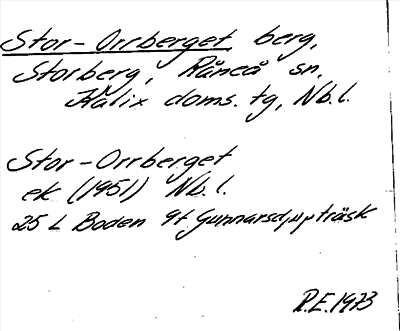 Stor-Orrberget berg,
Storberg, Råneå sn,
Kalix doms. tg, Nb. l.
Stor-Orrberget
ek (1951) Nb. l.
25 L Boden 9f Gunnarsdjupträsk
R.E. 1973